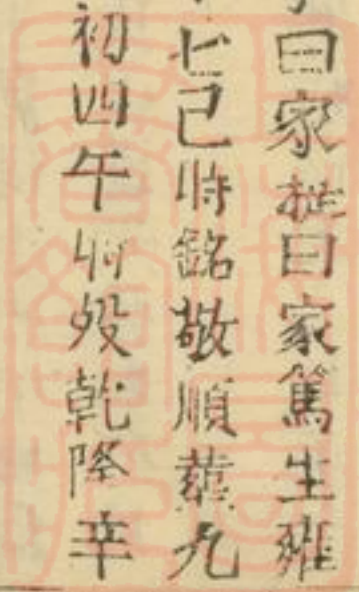 曰家曰家篤生雍
七己時銘敬順葬九
初四午時歿乾隆辛